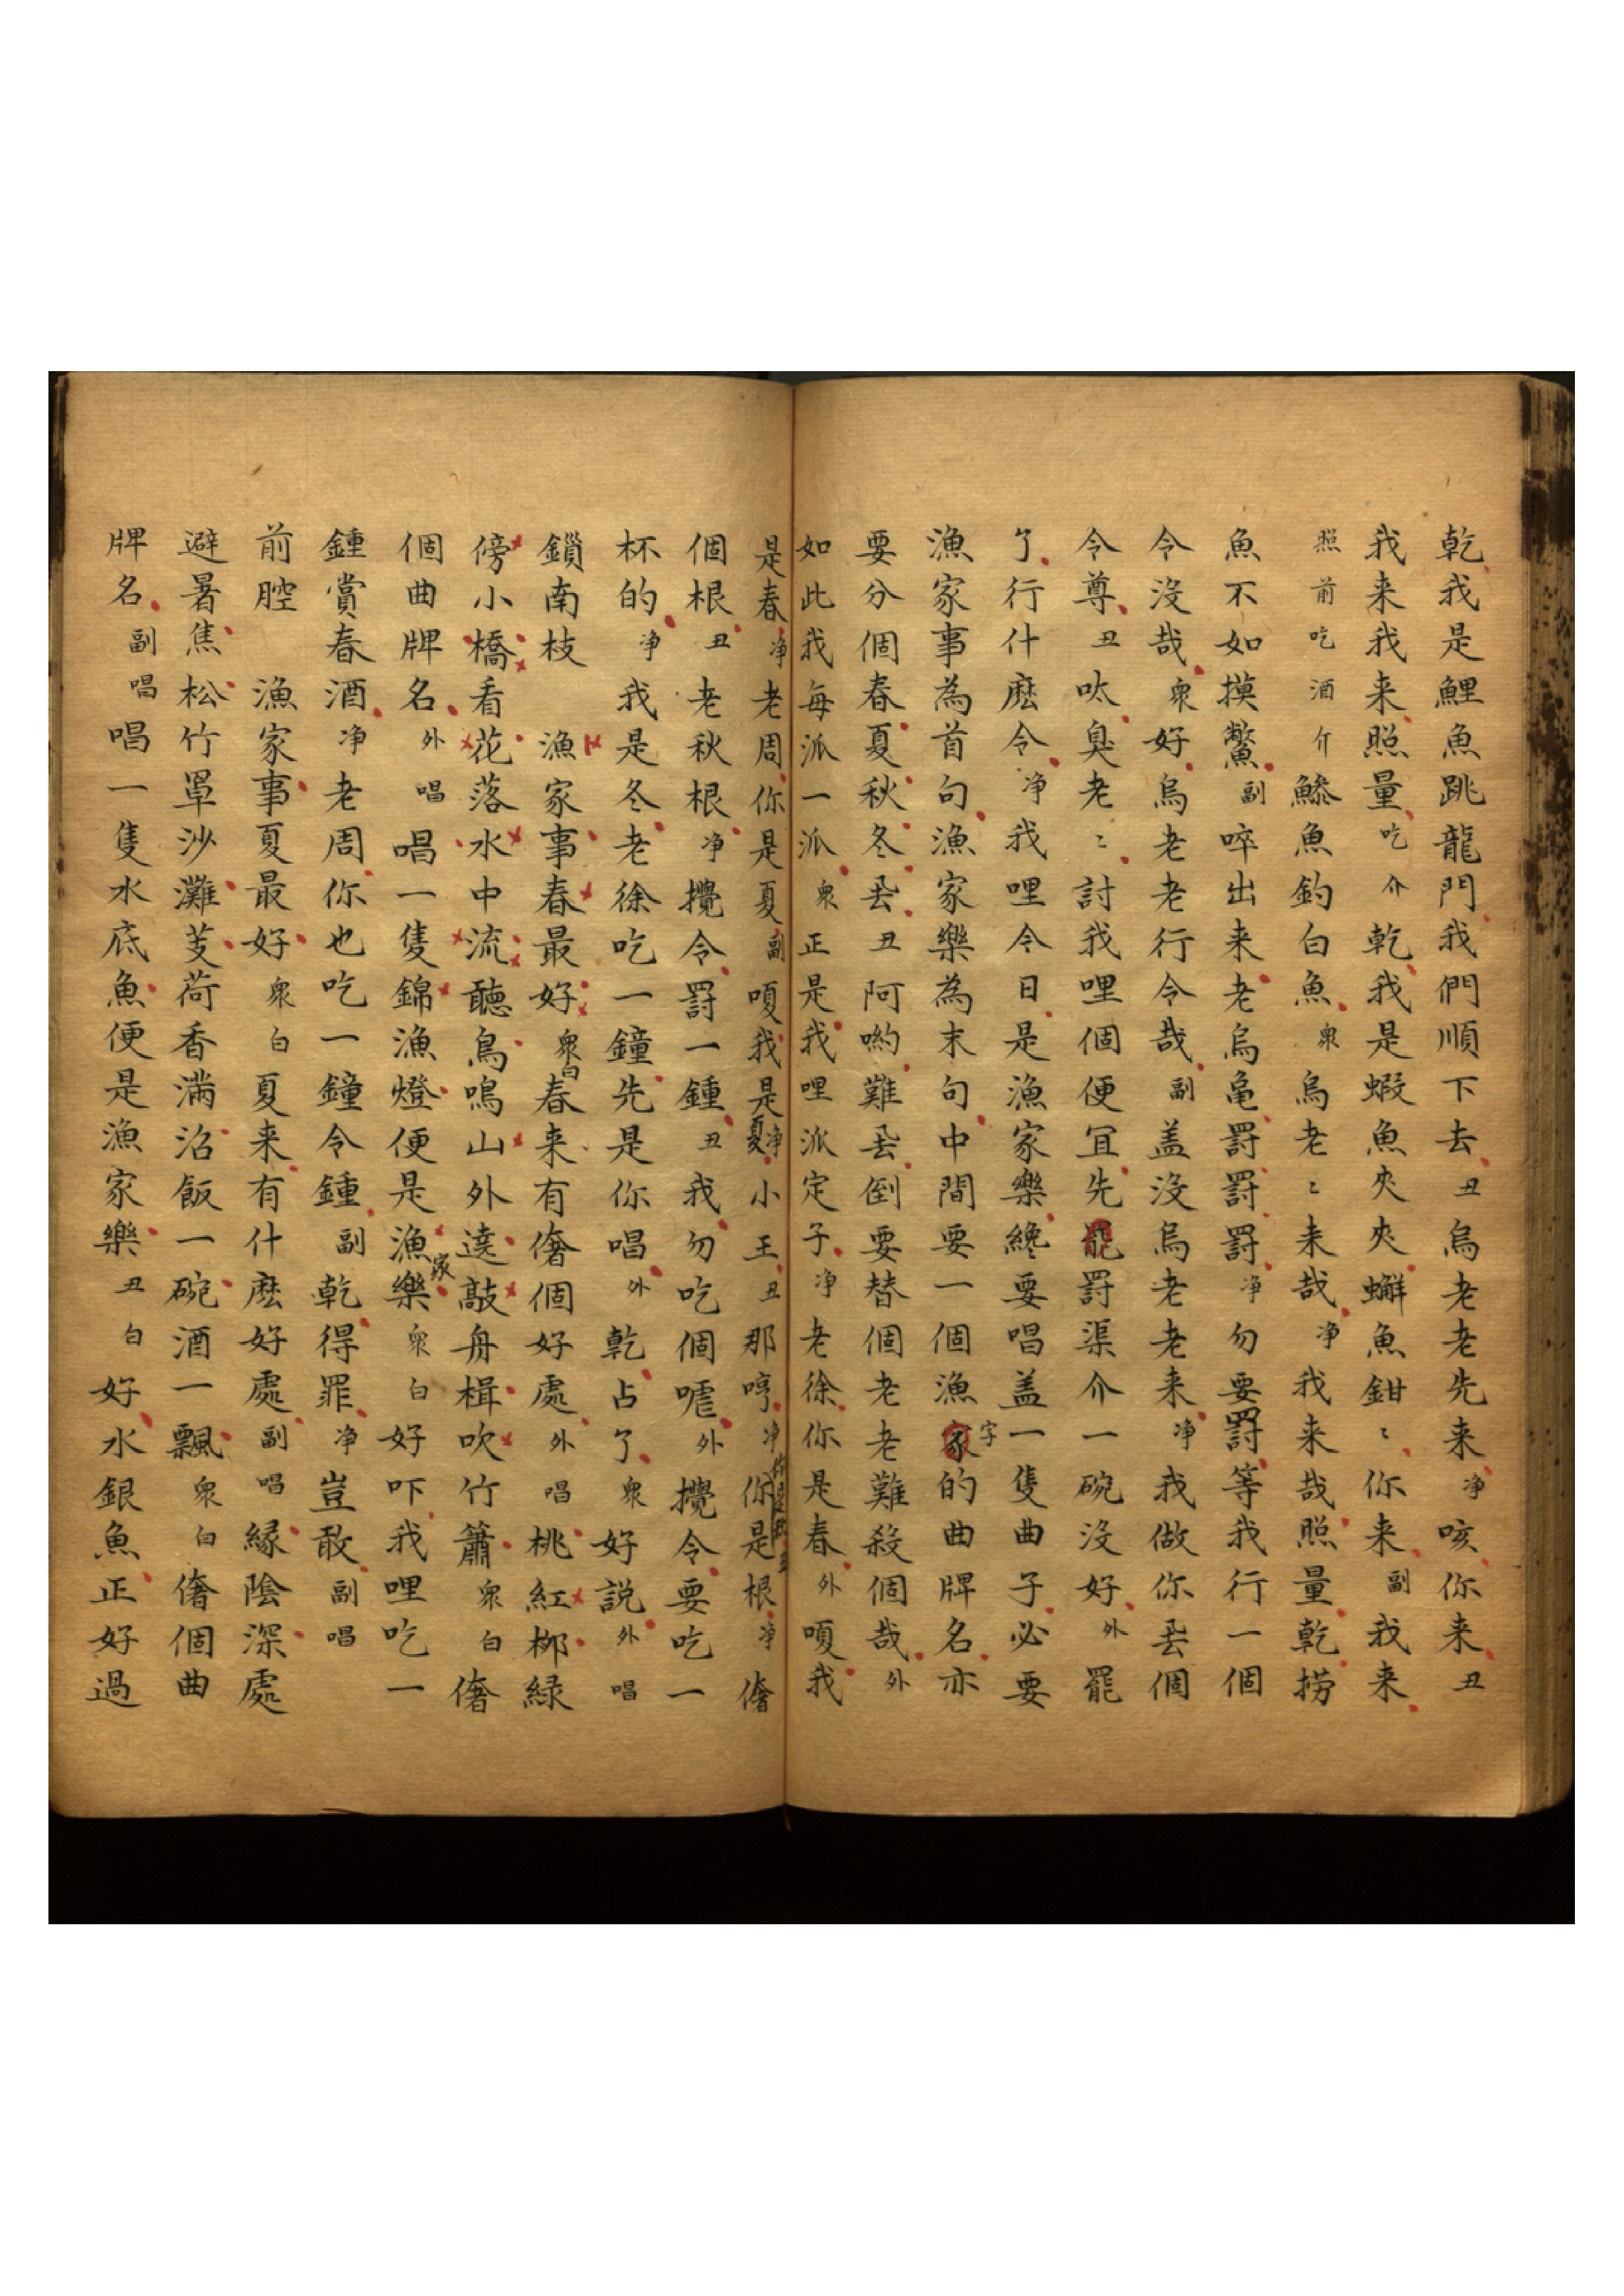 乾我是鯉魚跳龍門我們順下去丑烏老老先来净咳你来丑
我来我来照量吃介乾我是蝦魚夾夾蠏魚鉗〻你来副我来
照前吃酒介鯵魚釣白魚衆烏老〻来哉净我来哉照量乾撈
魚不如摸鱉副啐出来老烏亀罸罸罸净勿要罸等我行一個
令没哉衆好烏老老行令哉副盖没烏老老来净我做你丟個
令尊丑呔臭老〻討我哩個便宜先罷罸渠介一碗没好外罷
了行什麽令净我哩令日是漁家樂纔要唱盖一隻曲子必要
漁家事為首句漁家樂為末句中間要一個漁家字的曲牌名亦
要分個春夏秋冬丟丑阿喲難丟倒要替個老老難殺個哉外
如此我每派一派衆正是我哩派定子净老徐你是春外嗄我
是春净老周你是夏副嗄我是夏净小王丑那哼净你是根净㑹
個根丑老秋根净攪令罸一鍾丑我勿吃個嘘外攪令要吃一
杯的净我是冬老徐吃一鐘先是你唱外乾占了衆好説外唱
鎻南枝 漁家事春最好衆白春来有㑹個好處外唱桃紅栁緑
傍小橋看花落水中流聽鳥鳴山外遶敲舟楫吹竹簫衆白㑹
個曲牌名外唱唱一隻錦漁燈便是漁家樂衆白好吓我哩吃一
鍾賞春酒净老周你也吃一鐘令鍾副乾得罪净豈敢副唱
前腔 漁家事夏最好衆白夏来有什麽好處副唱緑陰深處
避暑焦松竹罩沙灘芰荷香滿沼飯一碗酒一瓢衆白㑹個曲
牌名副唱唱一隻水底魚便是漁家樂丑白好水銀魚正好過